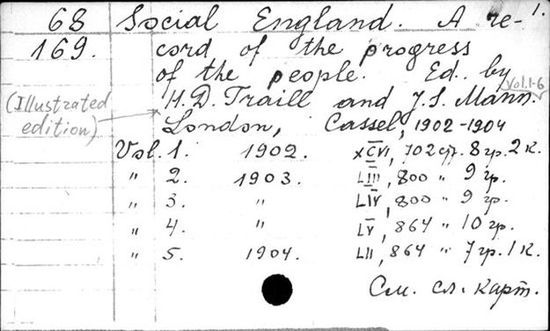 68 Social England. A re- 1.
169. cord of the progress
of the people. Ed. by Vol. 1-6
(Illustrated edition) H. D. Traill and J. S. Mann.
London, Cassel, 1902-1904
Vol. 1. 1902. XCVI, 702 стр. 8 гр. 2 к.
" 2. 1903. LIII, 800 " 9 гр.
" 3. " LIV, 800 " 9 гр.
" 4. " LV, 864 " 10 гр.
" 5. 1904. LII, 864 " 7 гр. 1 к.
См. сл. карт.